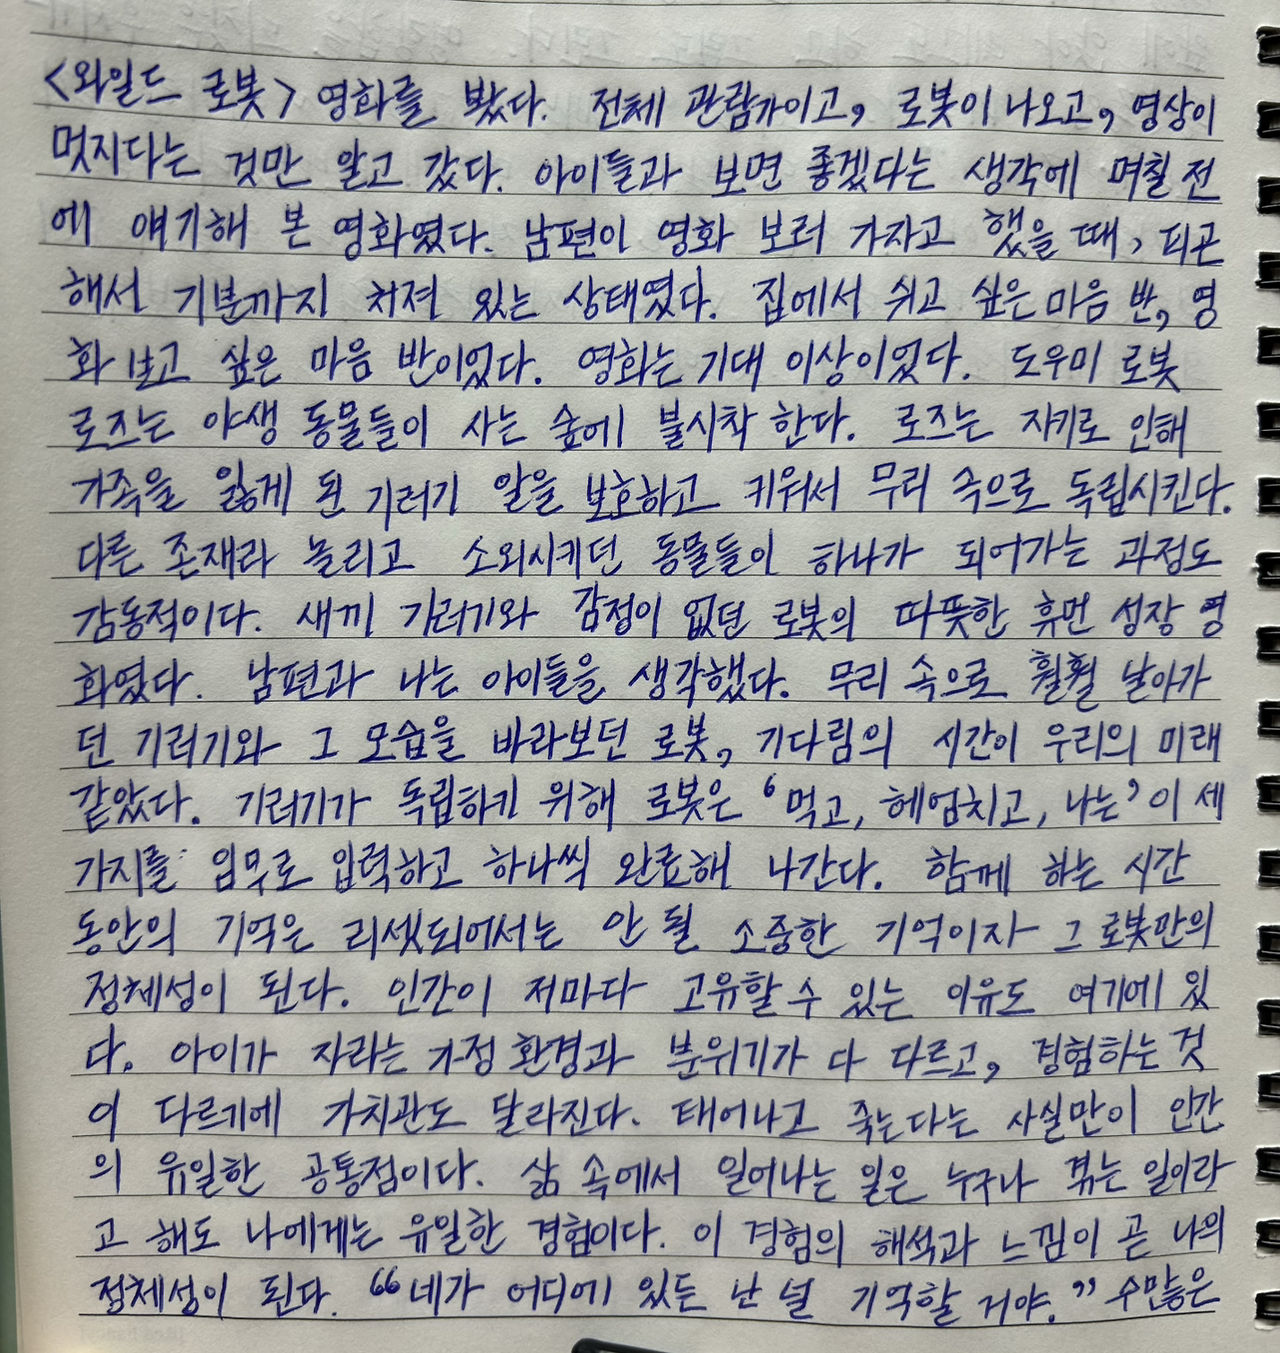 <와일드 로봇> 영화를 봤다. 전체 관람가이고, 로봇이 나오고, 영상이
멋지다는 것만 알고 갔다. 아이들과 보면 좋겠다는 생각에 며칠 전
에 얘기해 본 영화였다. 남편이 영화 보러 가자고 했을 때, 피곤
해서 기분까지 처져 있는 상태였다. 집에서 쉬고 싶은 마음 반, 영
화 보고 싶은 마음 반이었다. 영화는 기대 이상이었다. 도우미 로봇
로즈는 야생 동물들이 사는 숲에 불시착 한다. 로즈는 자기로 인해
가족을 잃게 된 기러기 알을 보호하고 키워서 무리 속으로 독립시킨다.
다른 존재라 놀리고 소외시키던 동물들이 하나가 되어가는 과정도
감동적이다. 새끼 기러기와 감정이 없던 로봇의 따뜻한 휴먼 성장 영
화였다. 남편과 나는 아이들을 생각했다. 무리 속으로 훨훨 날아가
던 기러기와 그 모습을 바라보던 로봇, 기다림의 시간이 우리의 미래
같았다. 기러기가 독립하기 위해 로봇은 ‘먹고, 헤엄치고, 나는’ 이 세
가지를 임무로 입력하고 하나씩 완료해 나간다. 함께 하는 시간
동안의 기억은 리셋되어서는 안 될 소중한 기억이자 그 로봇만의
정체성이 된다. 인간이 저마다 고유할 수 있는 이유도 여기에 있
다. 아이가 자라는 가정 환경과 분위기가 다 다르고, 경험하는 것
이 다르기에 가치관도 달라진다. 태어나고 죽는다는 사실만이 인간
의 유일한 공통점이다. 삶 속에서 일어나는 일은 누구나 겪는 일이라
고 해도 나에게는 유일한 경험이다. 이 경험의 해석과 느낌이 곧 나의
정체성이 된다. “네가 어디에 있든 난 널 기억할 거야.” 수많은